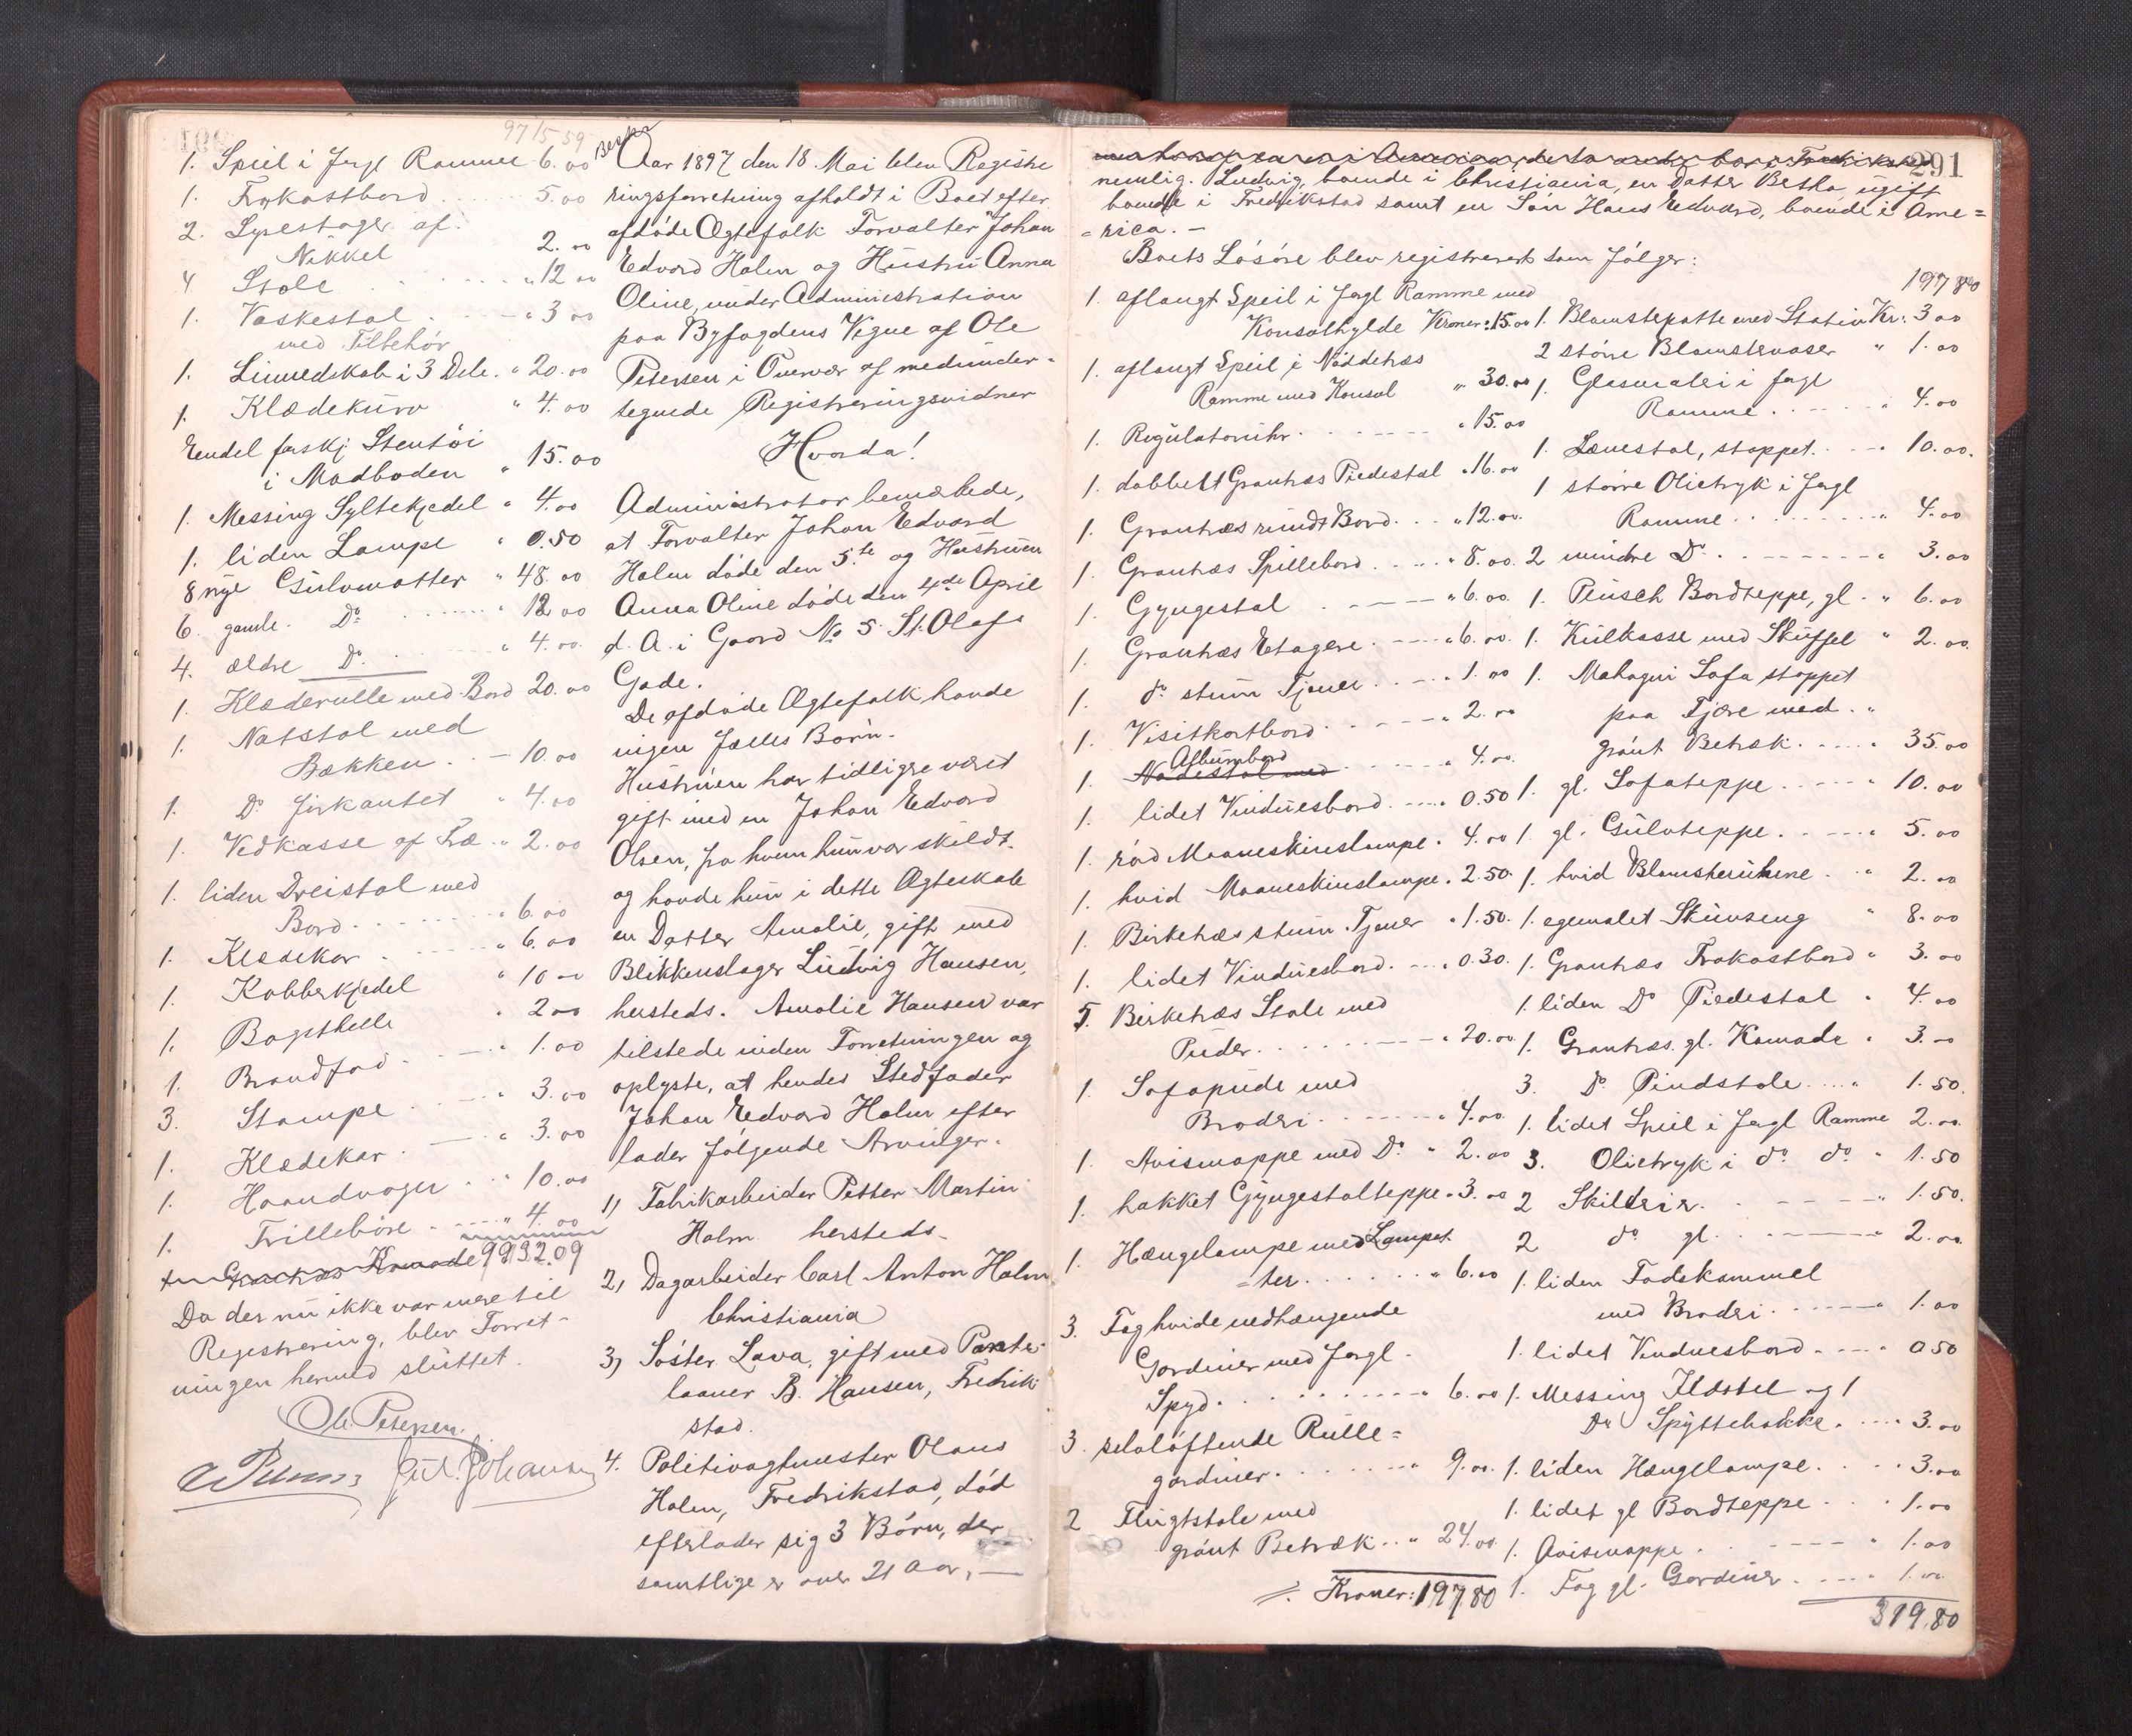 97 15 59
1. Speil i forgl Ramme 6.00
1. Frokostbord 5.00
2. Lysestager af
Nikkel 2.00
4 Stole " 12 00
1. Vaskestol " 3 00
med Tilbehør
1. Linnedskab i 3 Dele. " 20.00
1. Klædekurv " 4.00
Endel forskj Stentøi
i Madboden " 15.00
1. Messing Syltekjedel " 4.00
1. liden Lampe " 0.50
8 nye Gulvmatter " 48.00
6. gamle. Do " 12 00
4. ældre Do. " 4.00
1. Klæderulle med Bord 20.00
1. Natstol med
Bækken . . 10.00
1. Do firkantet " 4.00
1. Vedkasse af Træ " 2.00
1. liden Dreistol med
Bord " 6.00
1. Klædekar " 6.00
1. Kobberkjedel " 10 00
1. Bagsthelle " 2 00
1. Brandfad " 1.00
3. Stampe " 3.00
1. Klædekar " 3.00
1. Haandvogn " 10.00
1. Trillebøre " 4.00
932.09
Da der nu ikke var mere til
Registrering, blev Forret-
ningen hermed sluttet.
Ol. Petersen.
Jul. Johansen
Aar 1897 den 18. Mai blev Registre
ringsforretning afholdt i Boet efter
afdøde Ægtefolk Forvalter Johan
Edvard Holm og Hustru Anna
Oline, under Administration
paa Byfogdens Vegne af Ole
Petersen i Overvær af medunder-
tegnede Registreringsvidner
Hvorda!
Administrator bemærkede,
at Forvalter Johan Edvard
Holm døde den 5te og Hustruen
Anna Oline døde den 4de April
d. A. i Gaard No 5 St. Olafs
Gade.
De afdøde Ægtefolk havde
ingen fælles Børn.
Hustruen har tidligere været
gift med en Johan Edvard
Olsen, fra hvem hun var skildt.
og havde hun i dette Ægteskab
en Datter Amalie, gift med
Blikkenslager Ludvig Hansen,
hersteds. Amalie Hansen var
tilstede under Forretningen og
oplyste, at hendes Stedfader
Johan Edvard Holm efter
lader følgende Arvinger.
1) Fabrikarbeider Petter Martin
Holm hersteds.
2) Dagarbeider Carl Anton Holm
Christiania
3) Søster Lava, gift med Pante-
laaner B. Hansen, Fredrik
stad.
4. Politivagtmester Olaus
Holm, Fredrikstad, død
efterlader sig 3 Børn, der
samtlige er over 21 Aar, —
291
nemlig. Ludvig, boende i Christiania, en Datter Betha, ugift
boende i Fredrikstad samt en Søn Hans Edvard, boende i Ame=
=rica. —
Boets Løsøre blev registreret som følger:
1. aflangt Speil i forgl Ramme med
Konsolhylde Kroner: 15.00
1. aflangt Speil i Nøddetræs
Ramme med Konsol " 30.00
1. Regulatoruhr " 15.00
1. dobbelt Grantræs Piedestal " 16.00
1. Grantræs rundt Bord " 12.00
1. Grantræs Spillebord " 8.00.
1. Gyngestol " 6.00.
1. Grantræs Etagere " 6.00.
1. do stum Tjener " 1.00
1. Visitkortbord " 2.00
Albumbord
1. " 4.00.
1. lidet Vinduesbord " 0.50
1. rød Maaneskinslampe " 4.00
1. hvid Maaneskinslampe " 2.50.
1. Birketræs stum Tjener " 1.50.
1. lidet Vinduesbord " 0.30.
5. Birketræs Stole med
Puder " 20.00
1. Sofapude med
Broderi " 4.00.
1. Avismappe med Do " 2.00
1. hækket Gyngestolteppe " 3.00
1. Hængelampe med Lampet
=ter " 6.00
3. Fag hvide nedhængende
Gardiner med forgl.
Spyd " 6.00
3. selvløftende Rulle=
gardiner " 9.00.
2 Flugtstole med
grønt Betræk " 24.00.
Kroner: 197 80
197 80
1. Blomsterpotte med Stativ Kr: 3 00
2 større Blomstervaser " 1.00
1. Glasmaleri i forgl
Ramme " 4.00
1. Lænestol, stoppet 10.00.
1 større Olietryk i forgl
Ramme " 4.00
2 mindre Do " 3.00
1. Plüsch Bordteppe, gl. " 6.00
1. Kulkasse med Skuffel " 2.00.
1. Mahogni Sofa stoppet
paa Fjære med "
grønt Betræk " 35.00
1. gl. Sofateppe 10.00
1. gl. Gulvteppe " 5.00
1. hvid Blomsterurne " 2.00
1. egemalet Skuvseng " 8.00
1. Grantræs Frokostbord " 3.00
1. liden Do Piedestal " 4.00
1. Grantræs. gl. Komode " 3.00
3. Do Pindstole " 1.50.
1. lidet Speil i forgl Ramme 2.00.
3. Olietryk i do do " 1.50
2 Skilderir " 1.50.
2 do gl. " 2.00.
1. liden Fodskammel
med Broderi " 1.00
1. lidet Vinduesbord " 0 50
1. Messing Ildstel og 1
Do Spyttebakke " 3.00
1. liden Hængelampe 3.00
1. lidet gl Bordteppe 1.00
1. Avismappe " 1.00
1. Fag gl. Gardiner " 1.00
319.80